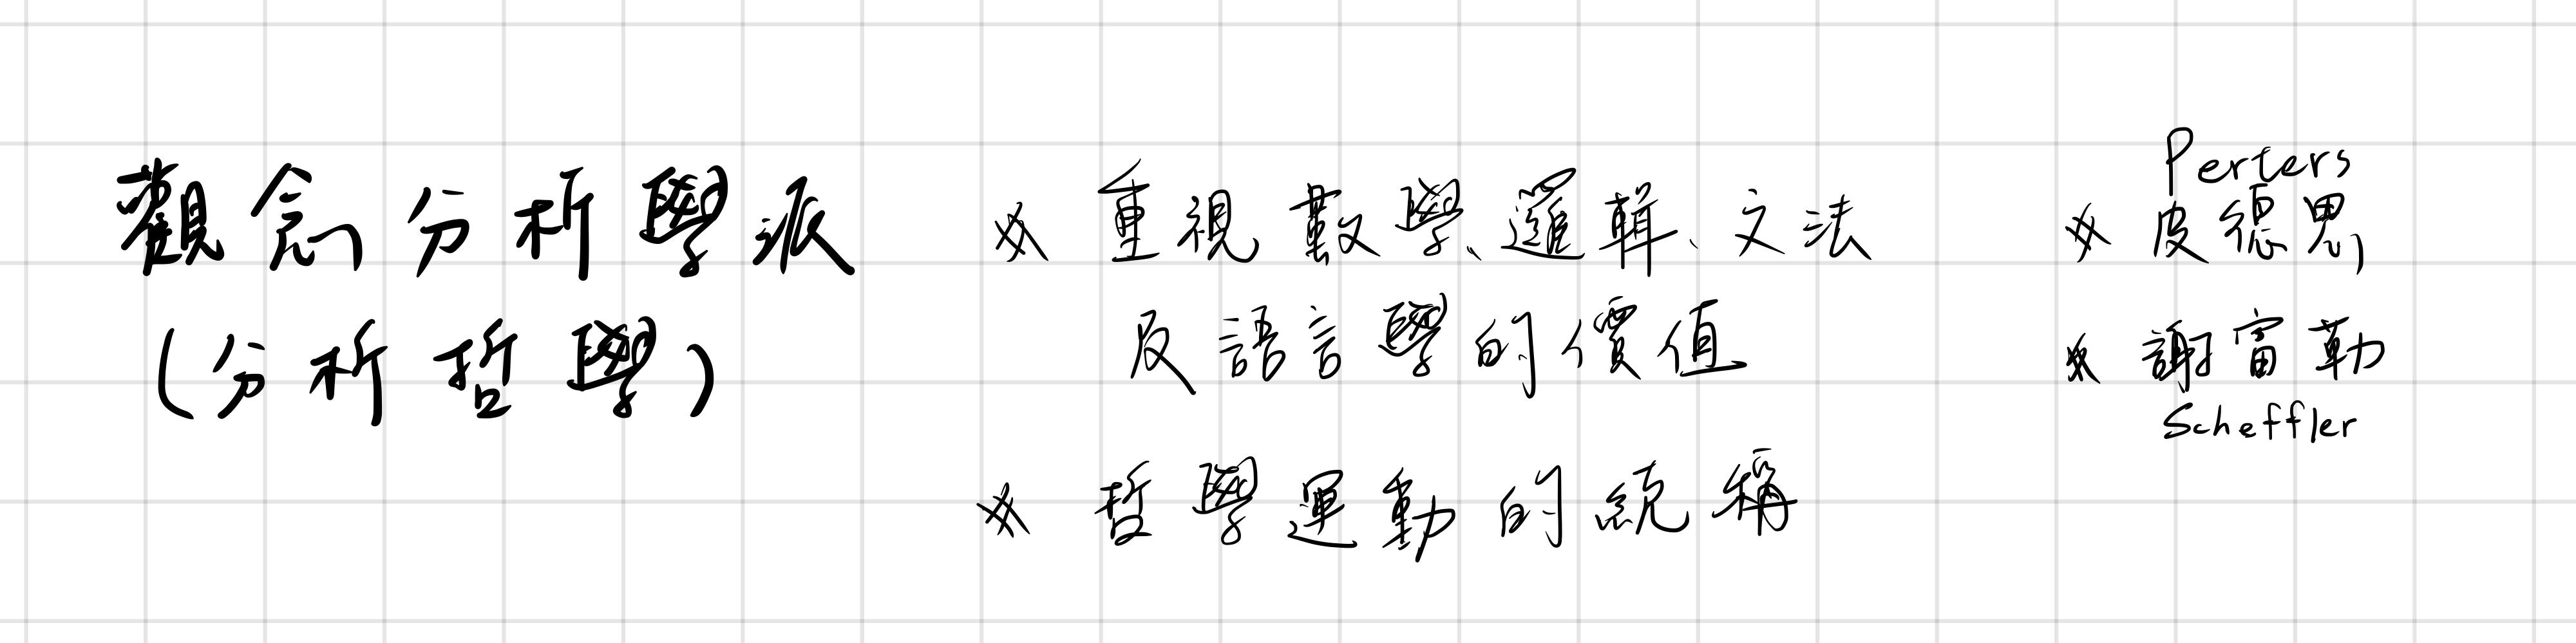 觀念分析學派
(分析哲學)
※ 重視數學、邏輯、文法
及語言學的價值
※ 哲學運動的統稱
Perters
※ 皮德思,
※ 謝富勒
Scheffler